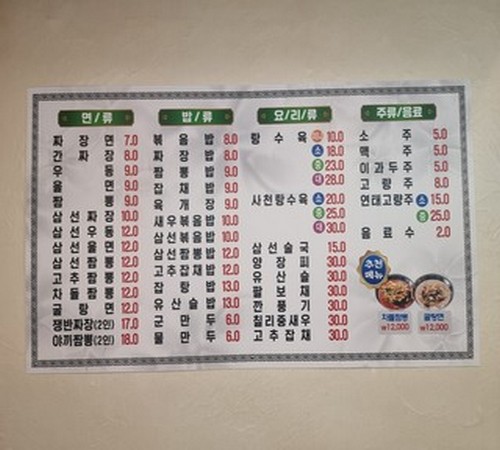 면/류
짜장면 7.0
간짜장 8.0
우동 9.0
울면 9.0
짬뽕 9.0
삼선짜장 10.0
삼선우동 12.0
삼선울면 12.0
삼선짬뽕 12.0
고추짬뽕 12.0
차돌짬뽕 12.0
굴탕면 12.0
쟁반짜장(2인) 17.0
야끼짬뽕(2인) 18.0
밥/류
볶음밥 8.0
짜장밥 8.0
짬뽕밥 9.0
잡채밥 9.0
육개장 9.0
새우볶음밥 10.0
삼선볶음밥 10.0
삼선짬뽕밥 12.0
고추잡채밥 12.0
잡탕밥 13.0
유산슬밥 13.0
군만두 6.0
물만두 6.0
요/리/류
탕수육 10.0
소 18.0
중 23.0
대 28.0
사천탕수육 소 20.0
중 25.0
대 30.0
삼선술국 15.0
양장피 30.0
유산슬 30.0
팔보채 30.0
깐풍기 30.0
칠리중새우 30.0
고추잡채 30.0
주류/음료
소주 5.0
맥주 5.0
이과두주 5.0
고량주 8.0
연태고량주 소 15.0
중 25.0
음료수 2.0
추천
메뉴
차돌짬뽕
₩12,000
굴탕면
₩12,000